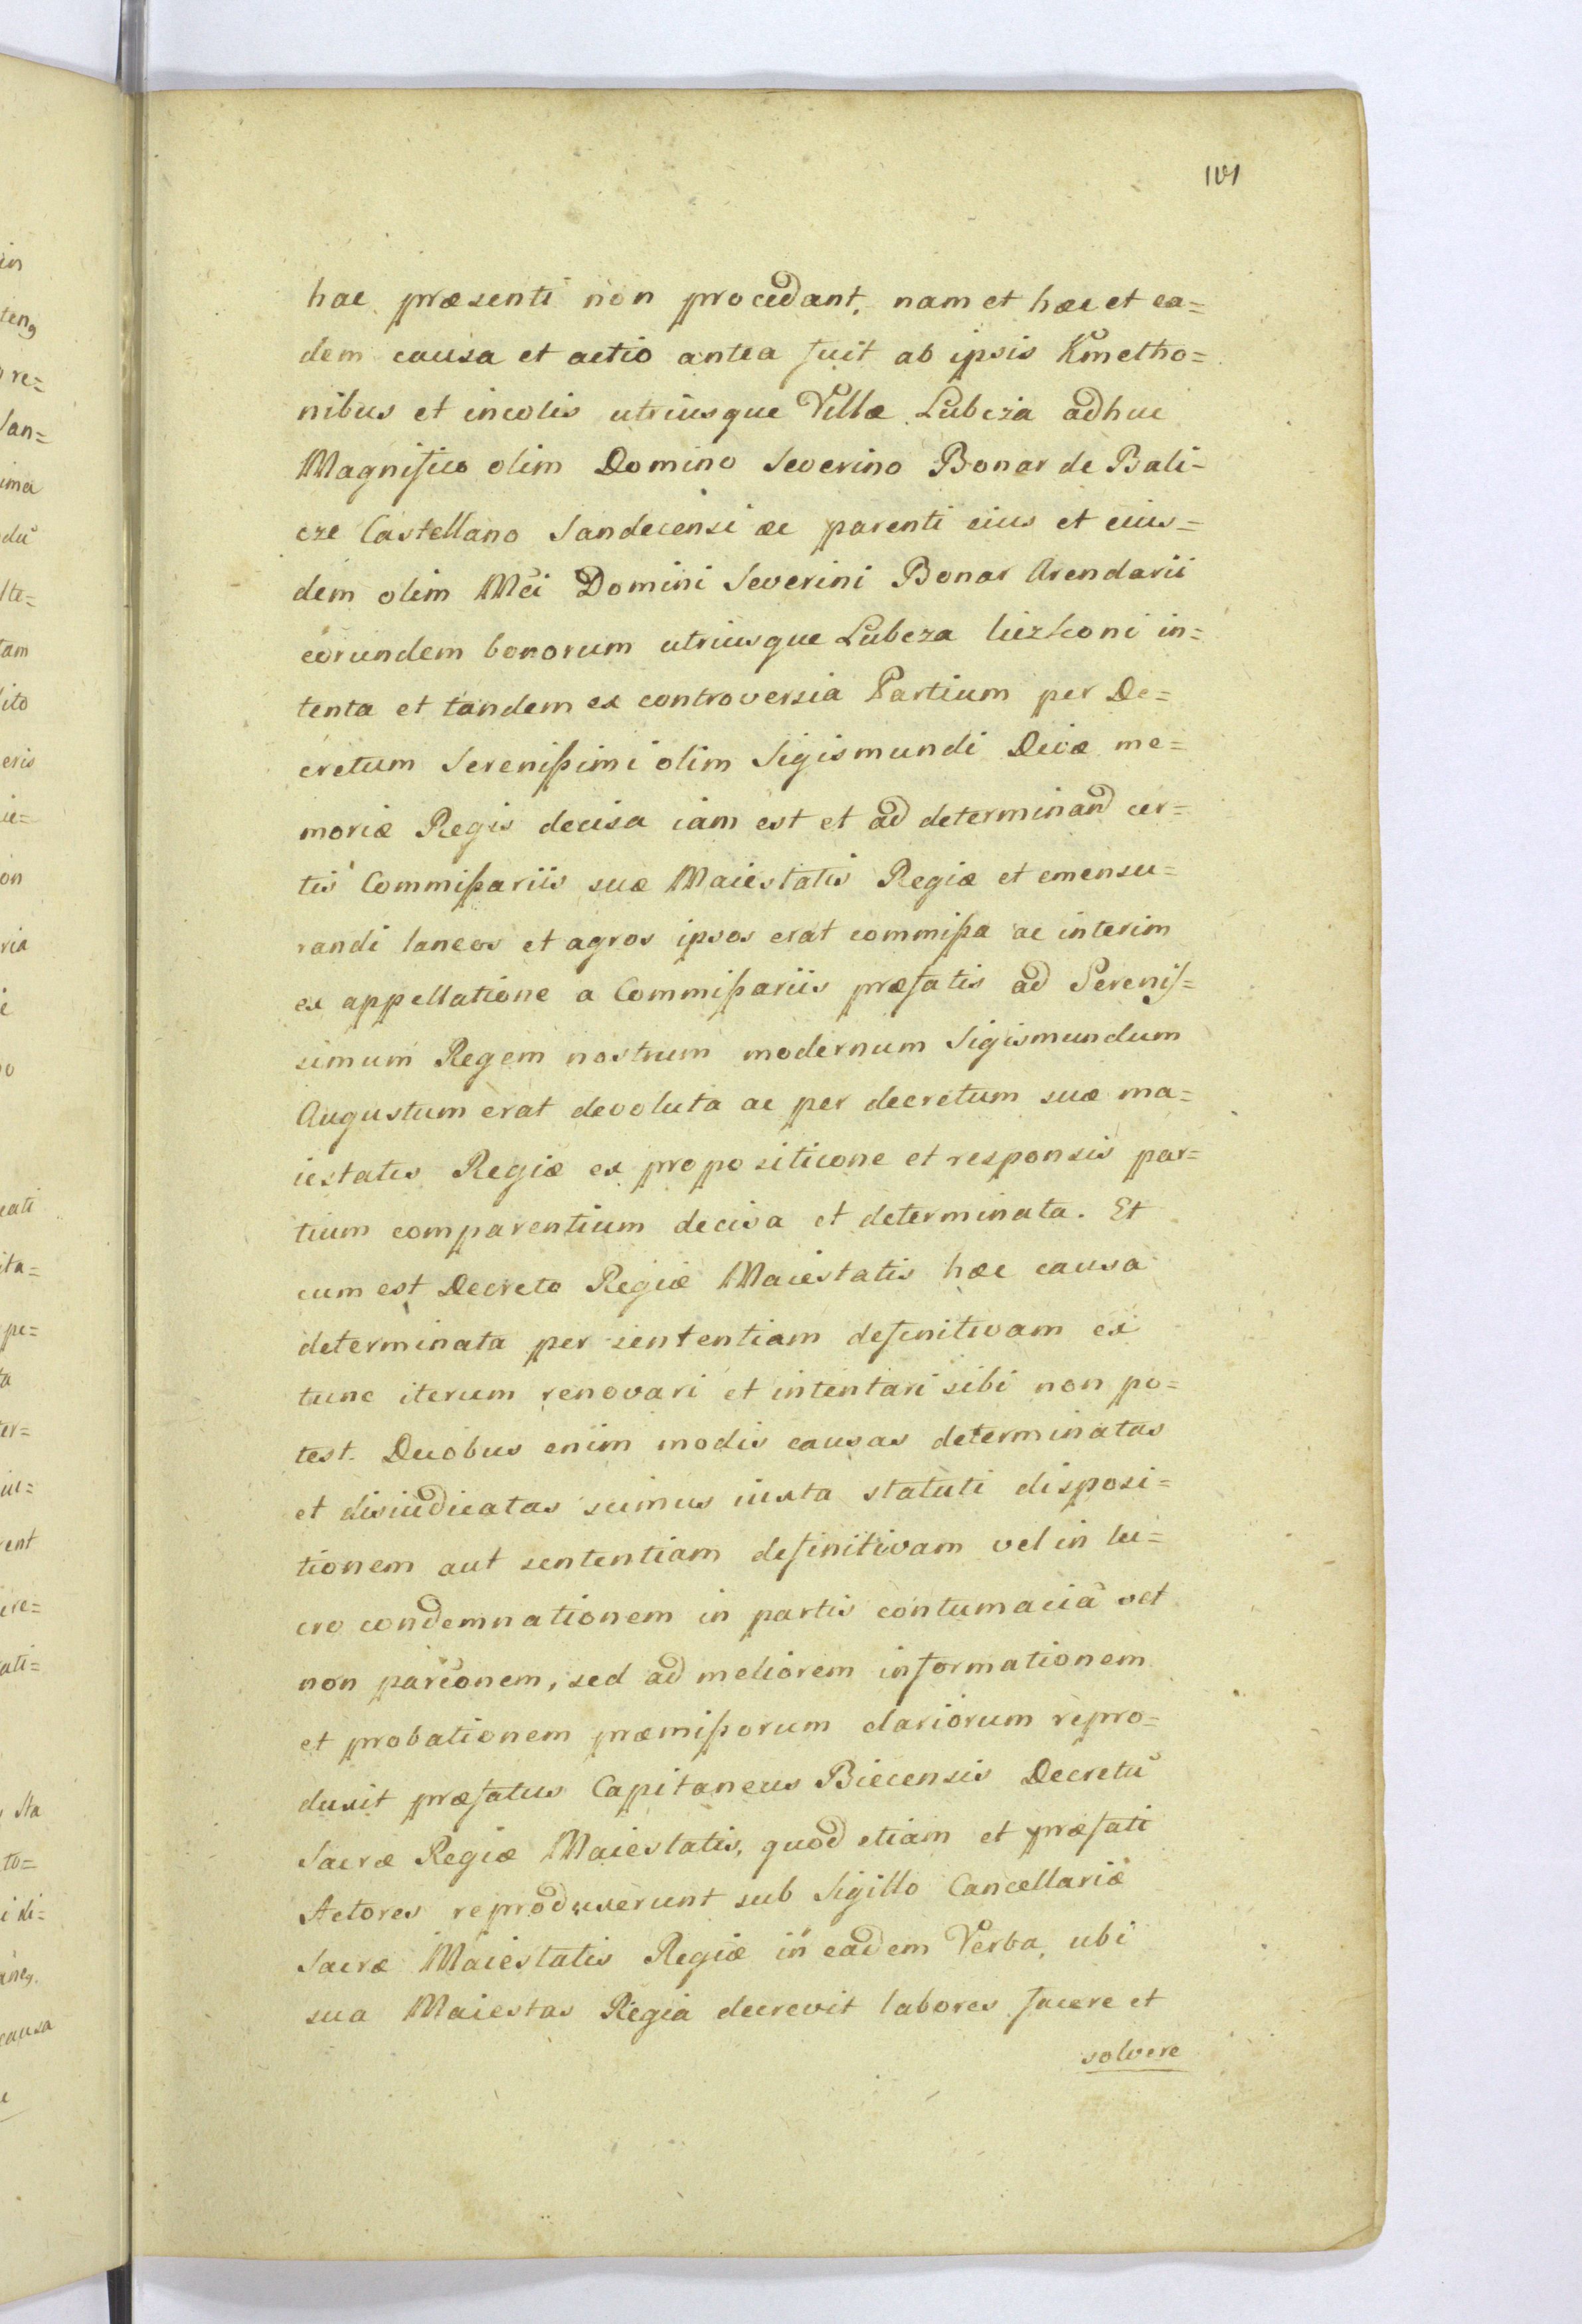 101
hac præsenti non procedant, nam et hæc et ea=
dem causa et actio antea fuit ab ipsis Kmetho=
nibus et incolis utriusque Villæ Lubcza adhuc
Magnifico olim Domino Severino Bonar de Bali=
cze Castellano Sandecensi ac parenti eius et eius=
dem olim Mci Domini Severini Bonar Arendarii
eorundem bonorum utriusque Lubcza in=
tenta et tandem ex controversia Partium per De=
cretum Serenißimi olim Sigismundi Divæ me=
moriæ Regis decisa iam est et ad determinand cer=
tis Commißariis suæ Maiestatis Regiæ et emensu=
randi laneos et agros ipsos erat commißa ac interim
ex appellatione a Commißariis præfatis ad Serenis=
simum Regem nostrum modernum Sigismundum
Augustum erat devoluta ac per decretum suæ ma=
iestatis Regiæ ex propositicone et responsis par=
tium comparentium decisa et determinata. Et
cum est Decreto Regiæ Maiestatis hæc causa
determinata per sententiam definitivam ex
tunc iterum renovari et intentari sibi non po=
test. Duobus enim modis causas determinatas
et disiudicatas scimus iuxta statuti disposi=
tionem aut sententiam definitivam vel in lu=
cro condemnationem in partis contumaciā vel
non parĉonem, sed ad meliorem informationem
et probationem præmißorum clariorum repro=
duxit præfatus Capitaneus Biecensis Decretū
Sacræ Regiæ Maiestatis, quod etiam et præfati
Actores reproduxerunt sub Sigillo Cancellariæ
Sacræ Maiestatis Regiæ in eadem Verba, ubi
sua Maiestas Regia decrevit labores facere et
solvere